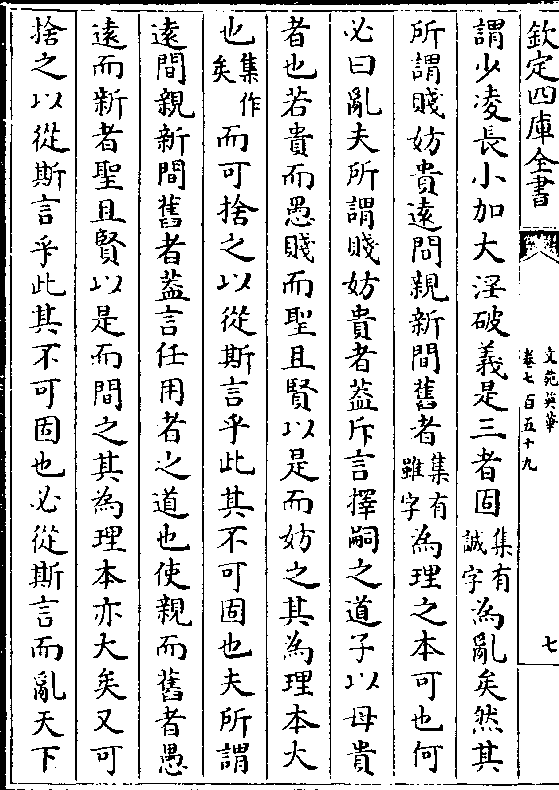 欽定四庫全書
文苑英華
卷七百五十九
七
謂少凌長小加大淫破義是三者固集有誠字為亂矣然其
所謂賤妨貴遠間親新間舊者集有雖字為理之本可也何
必曰亂夫所謂賤妨貴者蓋斥言擇嗣之道子以母貴
者也若貴而愚賤而聖且賢以是而妨之其為理本大
也集作矣而可捨之以從斯言乎此其不可固也夫所謂
遠間親新間舊者蓋言任用者之道也使親而舊者愚
遠而新者聖且賢以是而間之其為理本亦大矣又可
捨之以從斯言乎此其不可固也必從斯言而亂天下